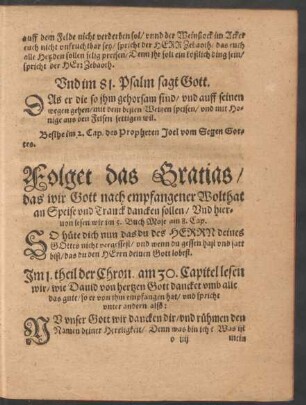 auff dem Felde nicht verderben sol/ vnnd der Weinstock im Acker
euch nicht vnfruchtbar sey/ spricht der HERR Zebaoth/ das euch
alle Heyden sollen selig preisen/ Denn jhr solt ein köstlich ding sein/
spricht der HErr Zebaoth.
Vnd im 81. Psalm sagt Gott.
DAs er die so jhm gehorsam sind/ vnd auff seinen
wegen gehen/ mit dem besten Weitzen speisen/ vnd mit Ho-
nige aus den Felsen settigen wil.
Besihe im 2. Cap. des Propheten Joel vom Segen Got-
tes.
Folget das Gratias/
das wir Gott nach empfangener Wolthat
an Speise vnd Tranck dancken sollen/ Vnd hier-
von lesen wir im 5. Buch Mose am 8. Cap.
SO hüte dich nun das du des HERRN deines
GOttes nicht vergessest/ vnd wenn du gessen hast vnd satt
bist/ das du den HErrn deinen Gott lobest.
Im 1. theil der Chron. am 30. Capitel lesen
wir/ wie Dauid von hertzen Gott dancket vmb alle
das gute/ so er von jhm empfangen hat/ vnd spricht
vnter andern also:
NV vnser Gott wir dancken dir/ vnd rühmen den
Namen deiner Herrligkeit/ Denn was bin ich? Was ist
o iiij mein